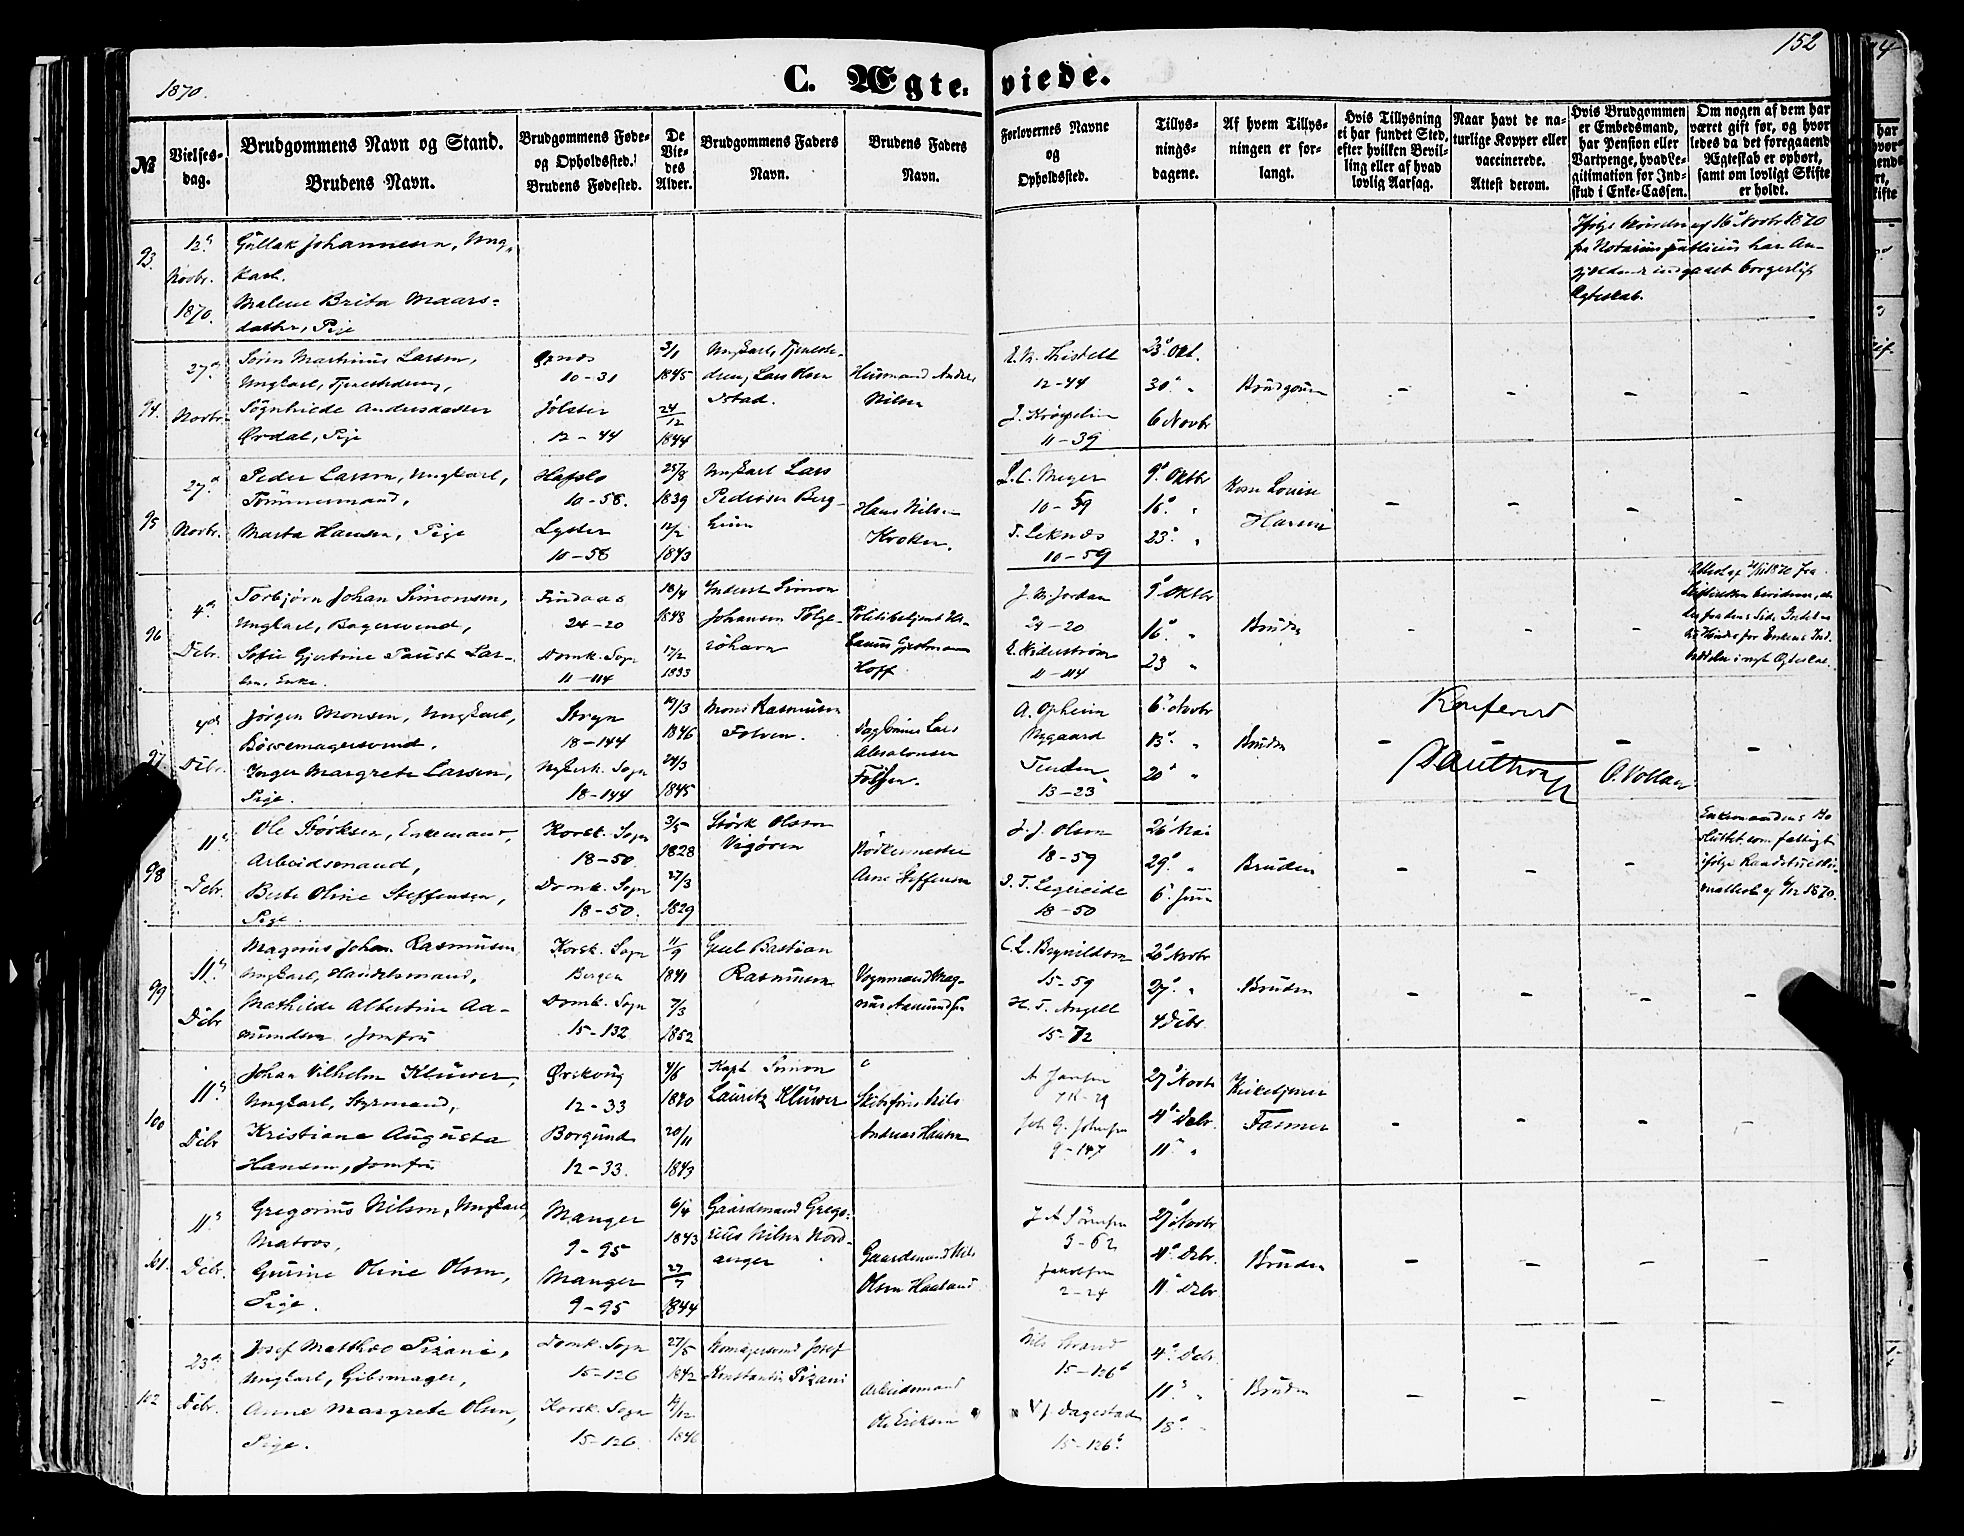 1870.
C. Ægte-
viede.
152
№
Vielses-
dag.
Brudgommens Navn og Stand.
Brudens Navn.
Brudgommens Føde-
og Opholdssted.
Brudens Fødested.
De
Vie-
des
Alder.
Brudgommens Faders
Navn.
Brudens Faders
Navn.
Forlovernes Navne
og
Opholdssted.
Tillys-
nings-
dagene.
Af hvem Tillys-
ningen er for-
langt.
Hvis Tillysning
ei har fundet Sted,
efter hvilken Bevil-
ling eller af hvad
lovlig Aarsag.
Naar havt de na-
turlige Kopper eller
vaccinerede.
Attest derom.
Hvis Brudgommen
er Embedsmand,
har Pension eller
Vartpenge, hvad Le-
gitimation for Ind-
skud i Enke-Cassen.
Om nogen af dem har
været gift før, og hvor
ledes da det foregaaende
Ægteskab er ophørt,
samt om lovligt Skifte
er holdt.
93.
12
Novbr.
1870.
Gullak Johannesen, Ung-
karl.
Malene Brita Maars-
datter, Pige
16 Novbr 1870
fra Notarius publicus har An-
gjældende indgaaet borgerligt
Ægteskab.
94.
27
Novbr.
Søren Martinus Larsen,
Ungkarl, Tjenestedreng,
Søgnhilde Andersdatter
Ørdal, Pige
10-31
Jølster
12-44
3/1
1845
24/12
1844
Ungkarl, Tjeneste-
dreng Lars Olsen
Husmand Anders
Nilsen
12-44
11-39
23 Okt.
30 "
6 Novbr
Brudgom
95
27
Novbr.
Peder Larsen, Ungkarl,
Tømmermand,
Marta Hansen, Pige
Hafslo
10-58.
Lyster
10-58
25/8
1839
12/2
1843
Ungkarl Lars
Pedersen Berg-
heim
Hans Nilsen
Kroken.
L. C. Meyer
10-59
T. Leknes
10-59
9 Oktbr
16 "
23 "
Louise
Hansen
96
4
Debr.
Torbjørn Johan Simonsen,
Ungkarl, Bagersvend,
Sofie Gjertine Paust Lar-
sen, Enke.
Findaas
24-20
Domk. Sogn
11-114
18/4
1848
17/2
1833
Inderst Simon
Johansen Folge-
røhavn
Politibetjent
Hoff
J. M. Jordan
24-20
11-114
9 Oktbr
16 "
23 "
Bruden
97
4de
Debr.
Jørgen Monsen, Ungkarl,
Bøssemagersvend.
Inger Margrete Larsen,
Pige.
Stryn
18-144
Nykirk. Sogn
18-144
19/3
1846
24/3
1845
Mons Rasmusen
Folven.
Lars
Absalonsen
A. Opheim
Nygaard
13-23
6 Novbr
13 "
20 "
Bruden
Konfereret
Dauthorff
O. Vollan
98
11
Debr.
Ole Størksen, Enkemand,
Arbeidsmand,
Berte Oline Steffensen,
Pige.
Korsk. Sogn
18-50
Domk. Sogn
18-50.
3/5
1828
27/3
1829
Størk Olsen
Vigøren
Arne Steffensen
J. J. Olsen
18-59
18-50
26 Mai
29 "
6 Juni
Bruden
Enkemandens Bo
sluttet som fattigt
99
11
Debr
Magnus Johan Rasmusen,
Ungkarl, Handelsmand,
Mathilde Albertine Aa-
mundsen, Jomfru
Korsk. Sogn
Bergen
Domk. Sogn
15-132
11/9
1841
7/3
1852
Bastian
Rasmusen
Vognmand Mag-
nus Aamundsen
15-59
H. T. Angell
15-72
20 Novbr
27 "
4 Debr.
Bruden
100
11
Debr
Johan Vilhelm Kluwer,
Ungkarl, Styrmand,
Kristiane Augusta
Hansen, Jomfru
Ørskoug
12-33
Borgund
12-33.
4/6
1840
20/11
1843
Kapt Simon
Lauritz Kluwer
Skibsfører Nils
Andreas Hansen
A. Jansen
9-147
27 Novbr
4 Debr.
11 "
Kirketjener
Fasmer
101.
11
Debr.
Gregorius Nilsen, Ungkarl,
Matros,
Gurine Oline Olsen,
Pige.
Manger
9-95
Manger
9-95
6/4
1843
27/7
1844
Gaardmand Grego-
rius Nilsen Nord-
anger
Gaardmand Nils
Olsen Haaland
9-62
Jakobsen
2-24
27 Novbr
4 Debr.
11 Debr
Bruden
102
23
Debr.
Josef Mathæo Pizani,
Ungkarl, Gibsmager,
Anne Margrete Olsen,
Pige.
Domk. Sogn
15-126
Korsk. Sogn
15-126.
27/5
1842
4/12
1846
Josef
Konstantin Pizani
Arbeidsmand
Ole Eriksen
Nils Strand
15-126
V. J. Dagestad
15-126
4 Debr.
11 "
18 "
Bruden